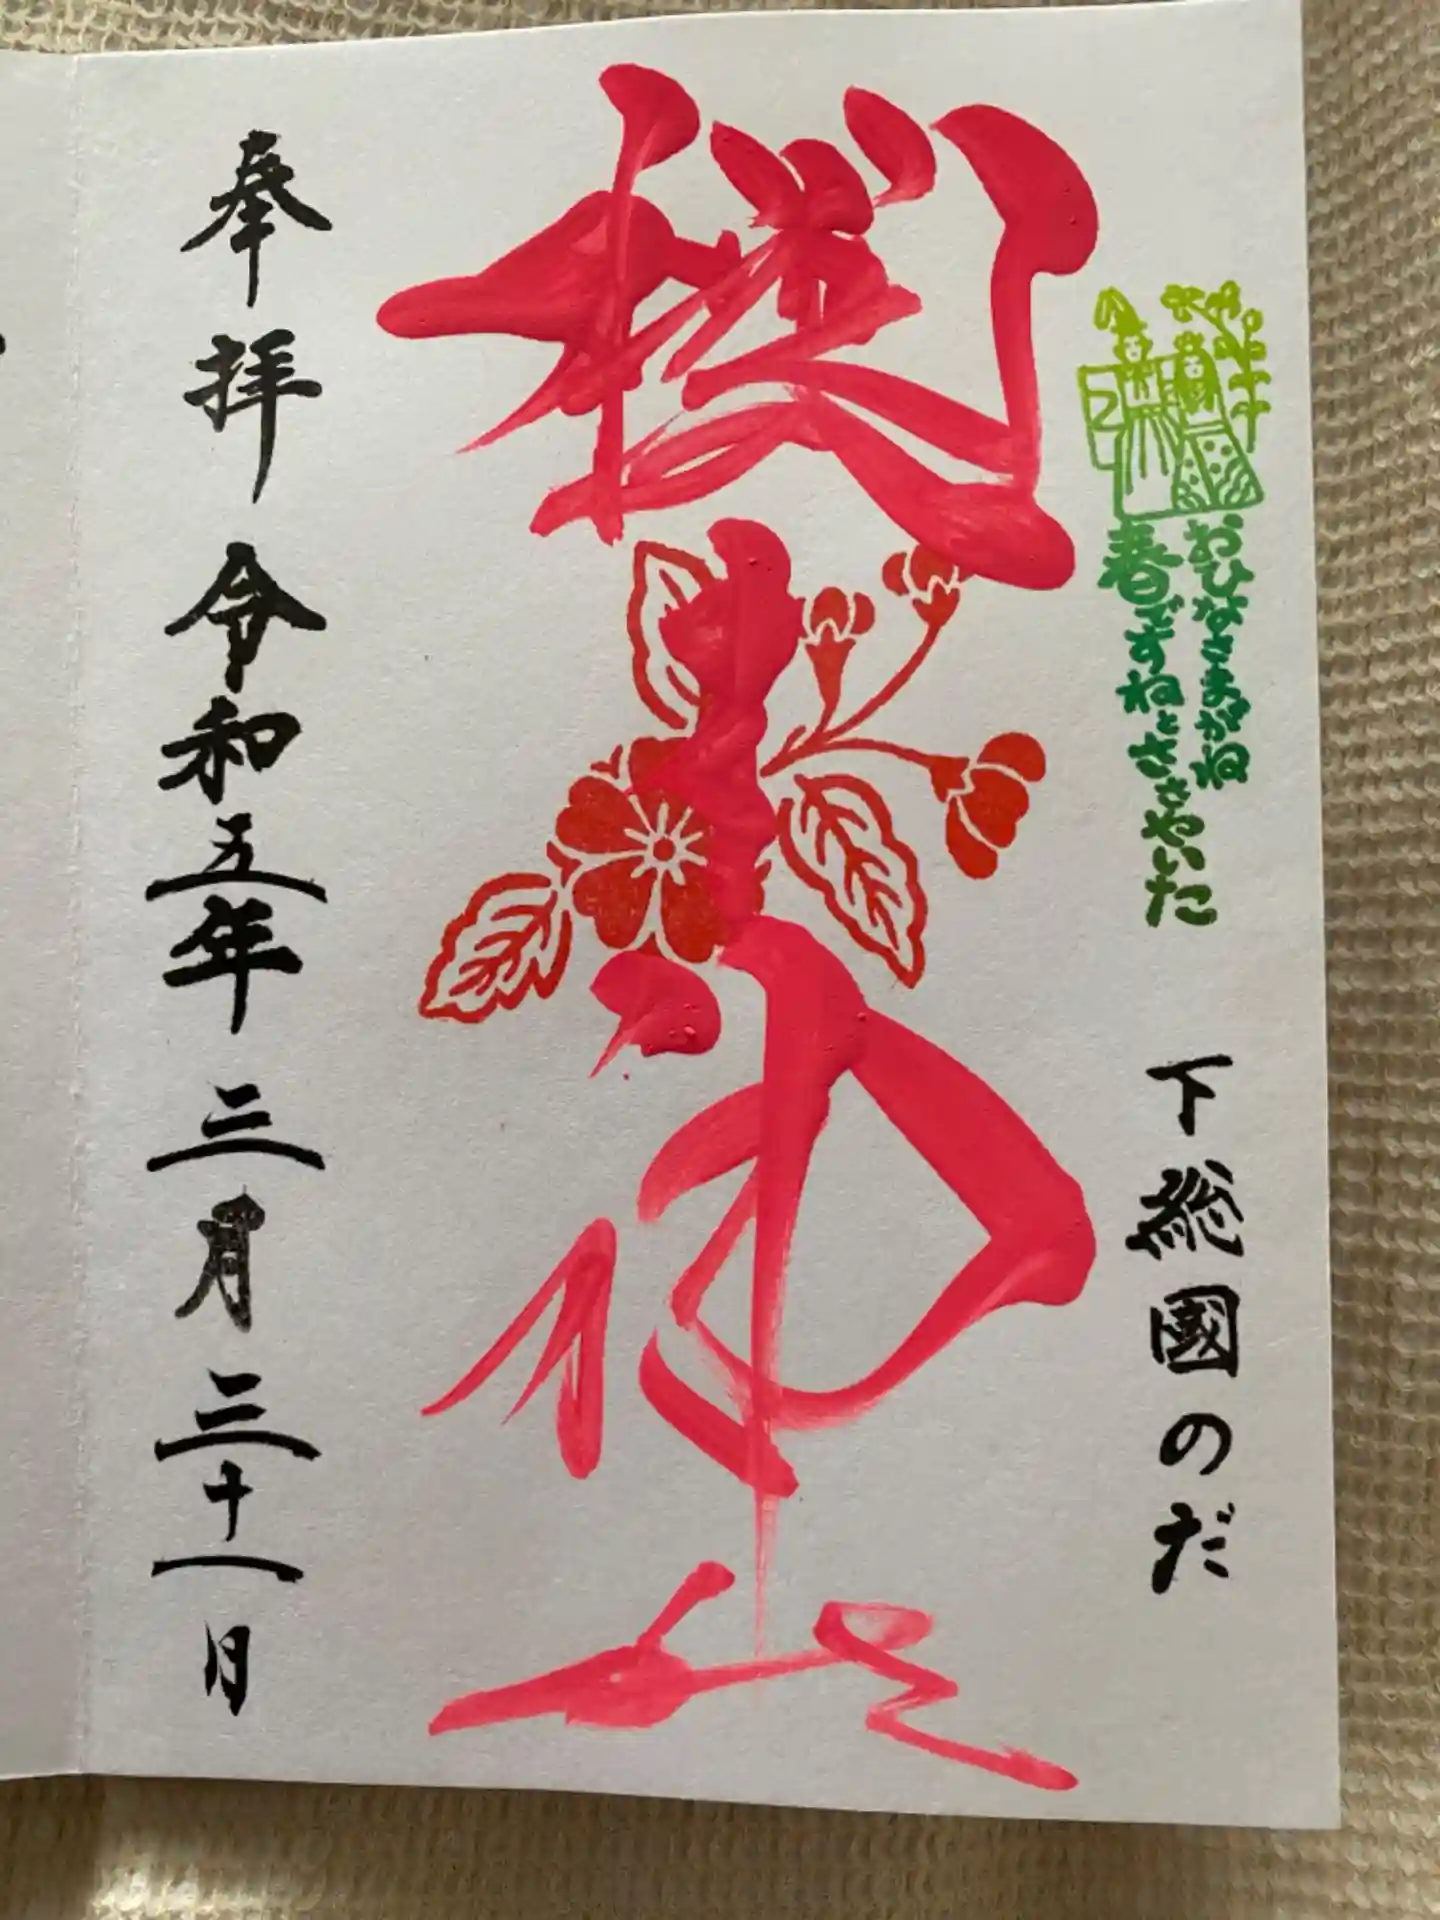 おひなさまがね
春ですねとささやいた
下総國のだ
櫻木神社
奉拝 令和五年 三月 三十一日